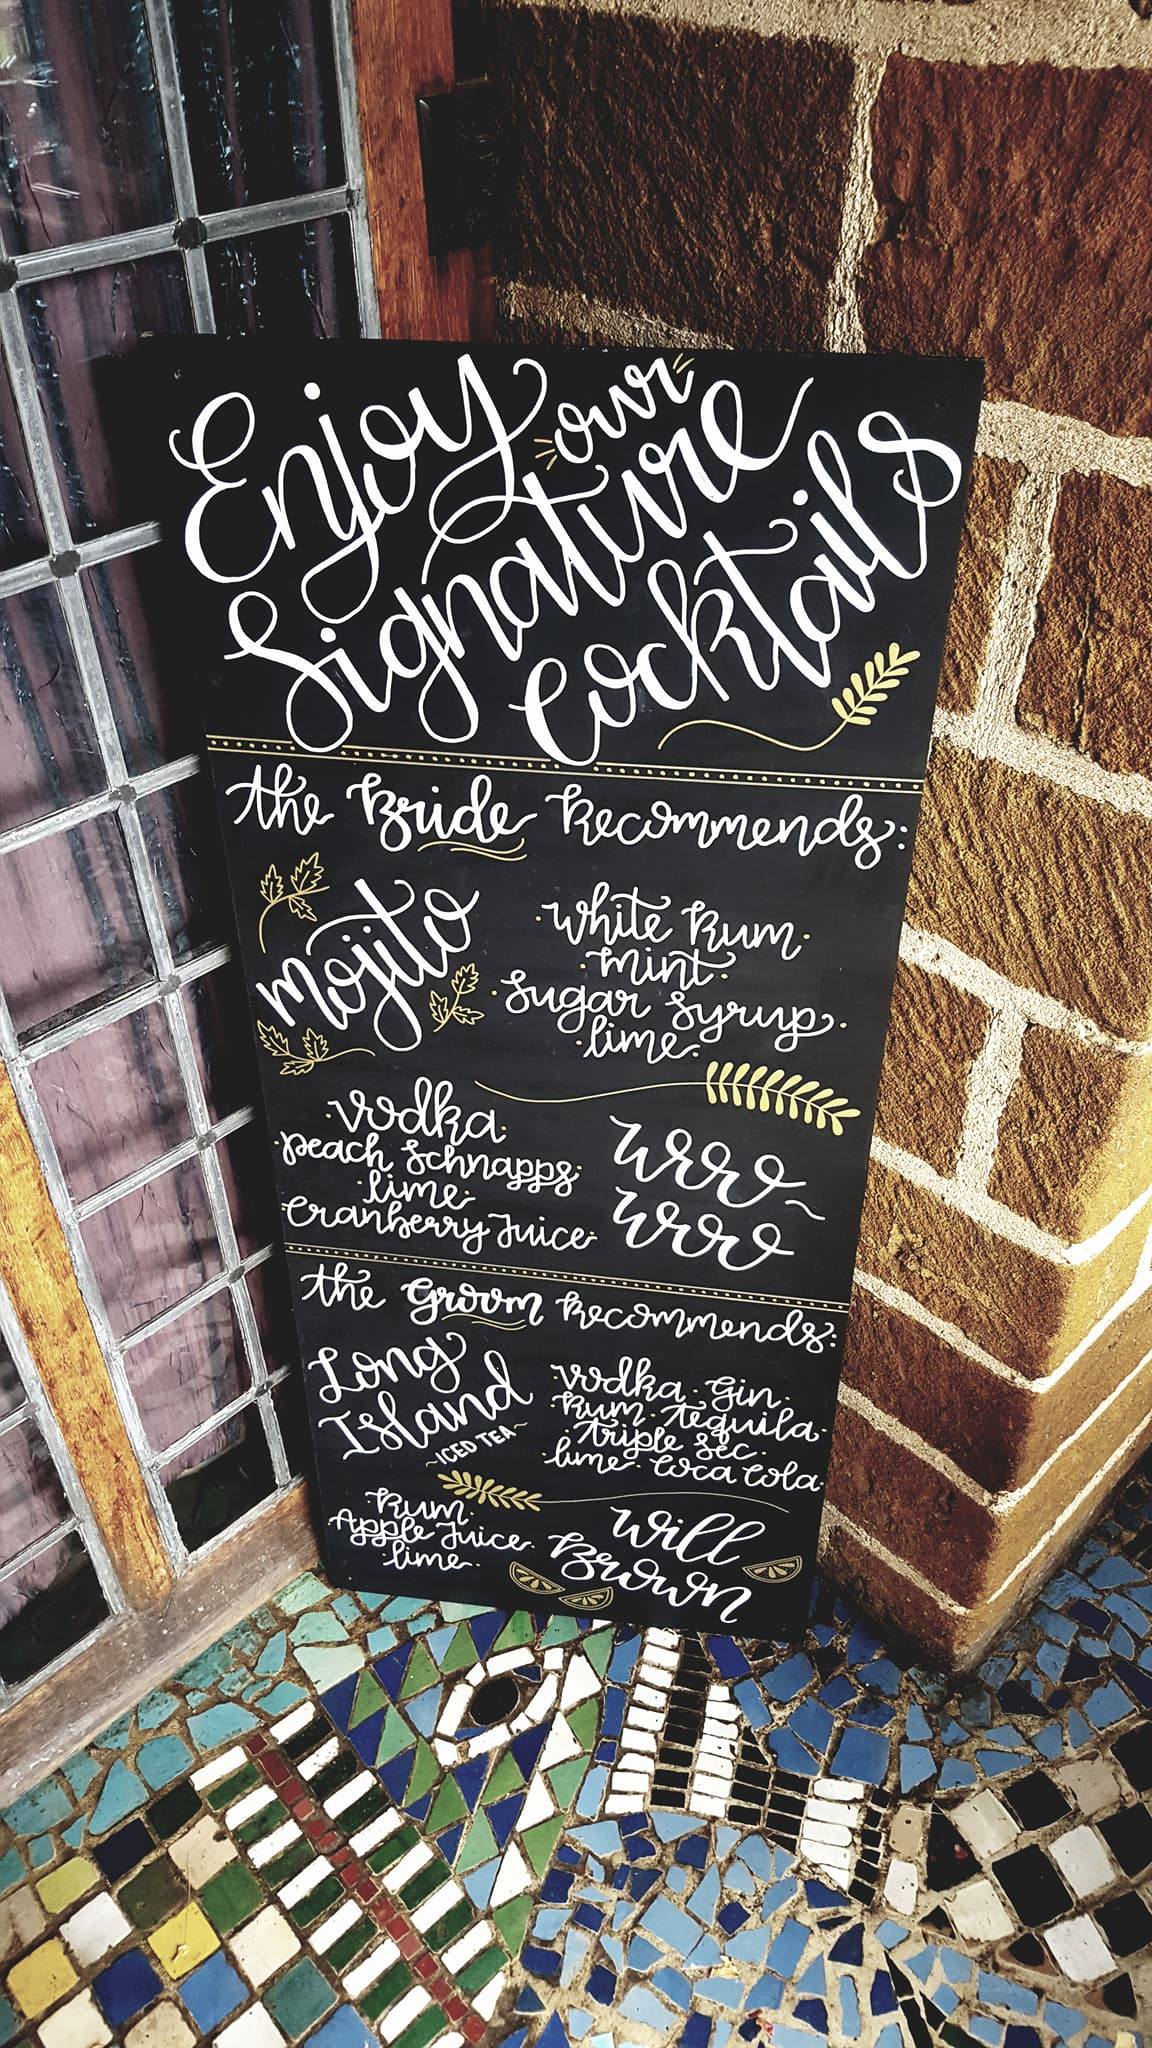 Enjoy our
Signature
Cocktails
the Bride Recommends:
mojito
·White Rum·
·mint·
·Sugar Syrup·
·lime·
·Vodka·
·peach Schnapps·
·lime·
·Cranberry Juice·
Woo~
Woo
the Groom Recommends:
Long
Island
~ICED TEA~
·Vodka·Gin·
Rum·Tequila·
·Triple Sec·
·lime·Coca Cola·
·Rum·
·Apple Juice·
·lime·
Will
Brown